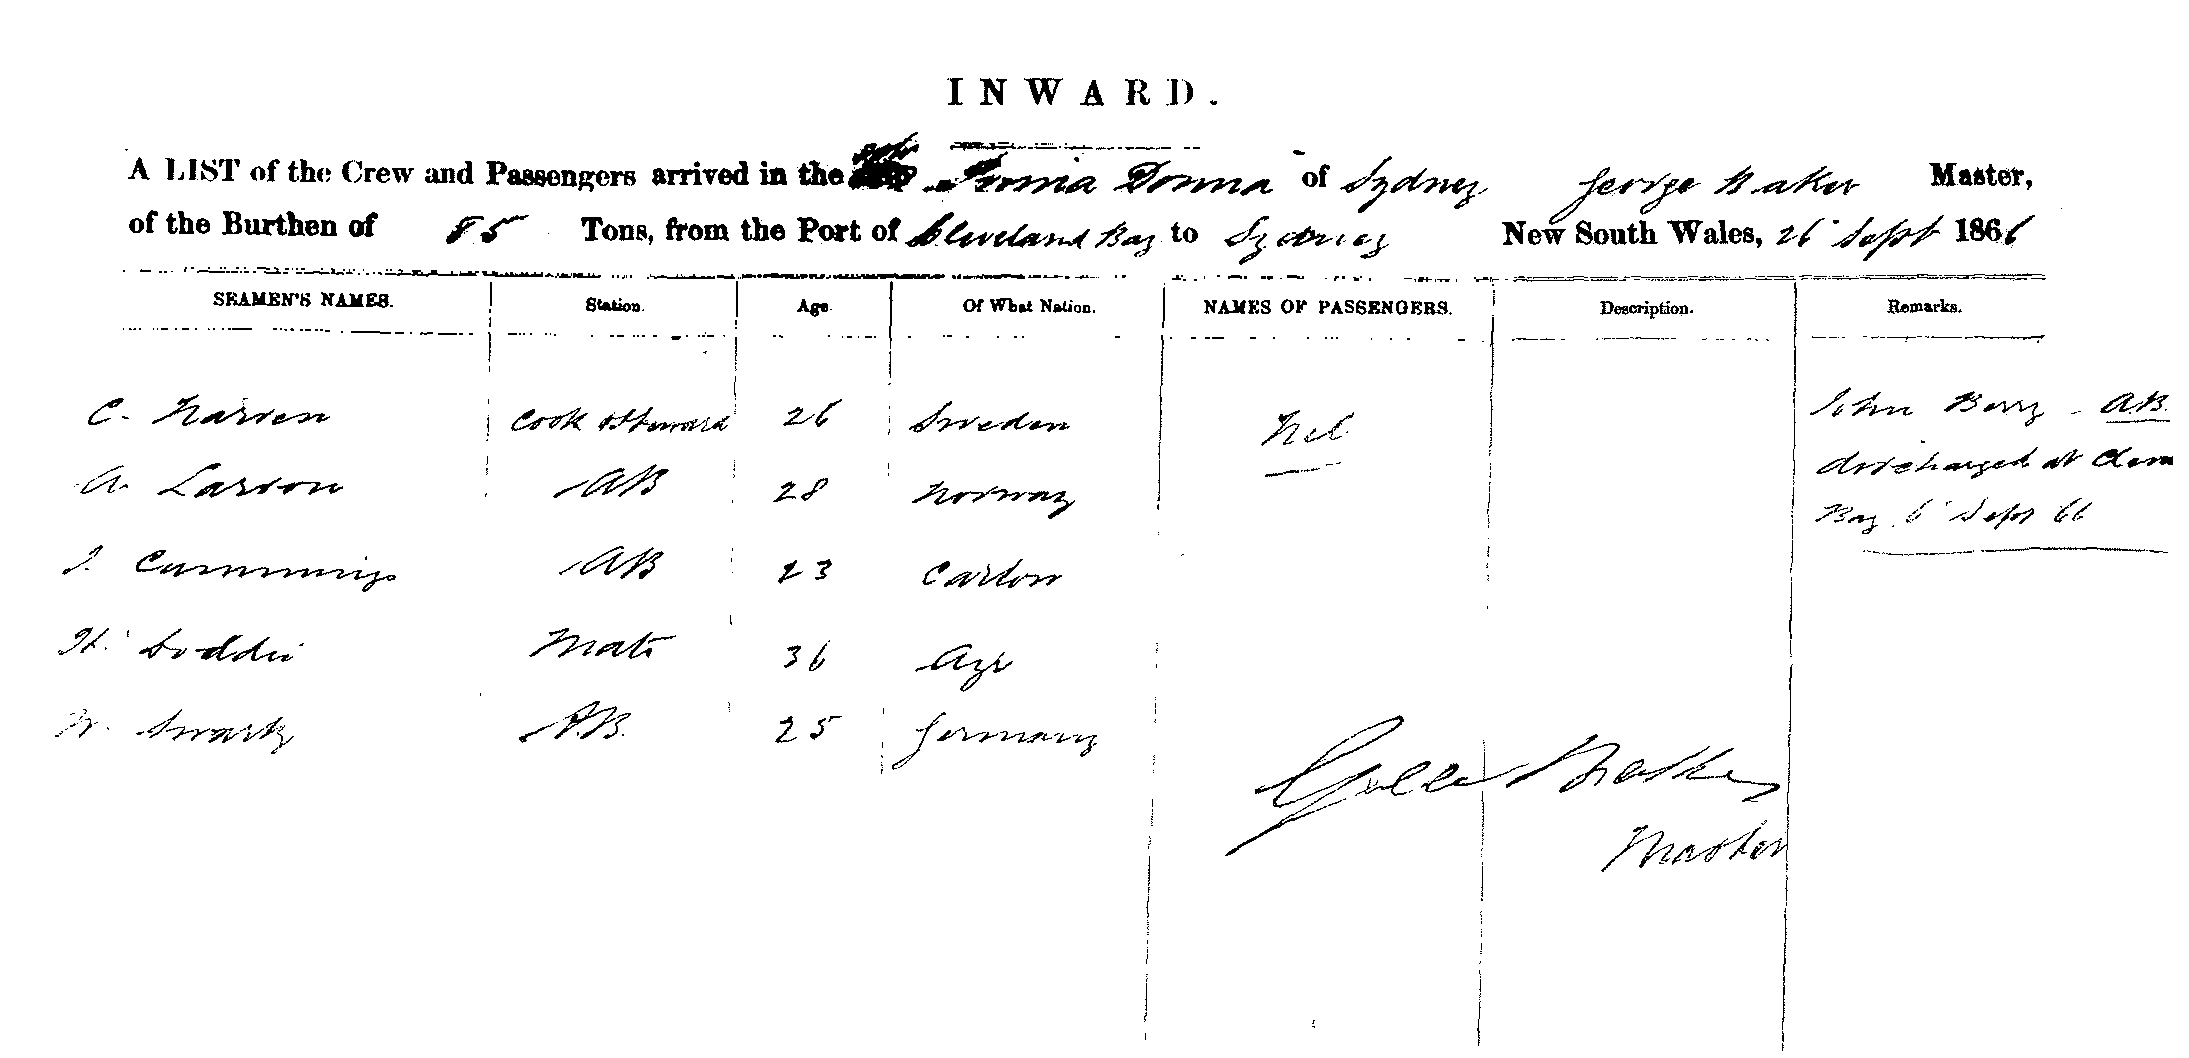 INWARD.
A LIST of the Crew and Passengers arrived in the Prima Donna of Sydney George Baker Master,
of the Burthen of 85 Tons, from the Port of Cleveland Bay to Sydney New South Wales, 26 Sept 1866
SEAMEN'S NAMES. Station. Age. Of What Nation. NAMES OF PASSENGERS. Description. Remarks.
C. Cook & Steward 26 Sweden Nil John Berry - AB.
A. Larson AB 28 Norway discharged at Cleve
Bay 6 Sept 66
J. Cummings AB 23 Carlow
H. Mate 36 Ayr
W. Swartz A.B. 25 Germany
Baker
Master